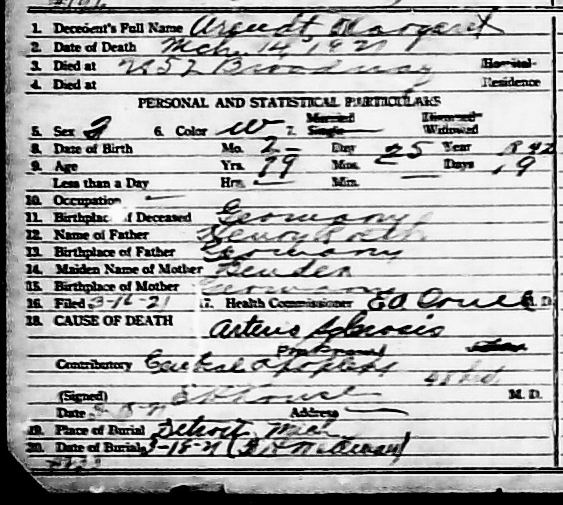 1. Decedent's Full Name Arendt, Margaret
2. Date of Death Mch. 14, 1921
3. Died at Broadway Hospital
4. Died at Residence
PERSONAL AND STATISTICAL PARTICULARS
Married Divorced
5. Sex F 6. Color W 7. Single Widowed
8. Date of Birth Mo. 2 Day 25 Year 1842
9. Age Yrs. 79 Mos. — Days 19
Less than a Day Hrs. — Min.
10. Occupation —
11. Birthplace of Deceased Germany
12. Name of Father Henry Roeth
13. Birthplace of Father Germany
14. Maiden Name of Mother Bender
15. Birthplace of Mother Germany
16. Filed 3-16-21 17. Health Commissioner M. D.
18. CAUSE OF DEATH Arterio Sclerosis
Contributory Cerebral Apoplexy
(Signed) M. D.
Date Address —
19. Place of Burial Detroit, Mich
20. Date of Burial 3-18-21